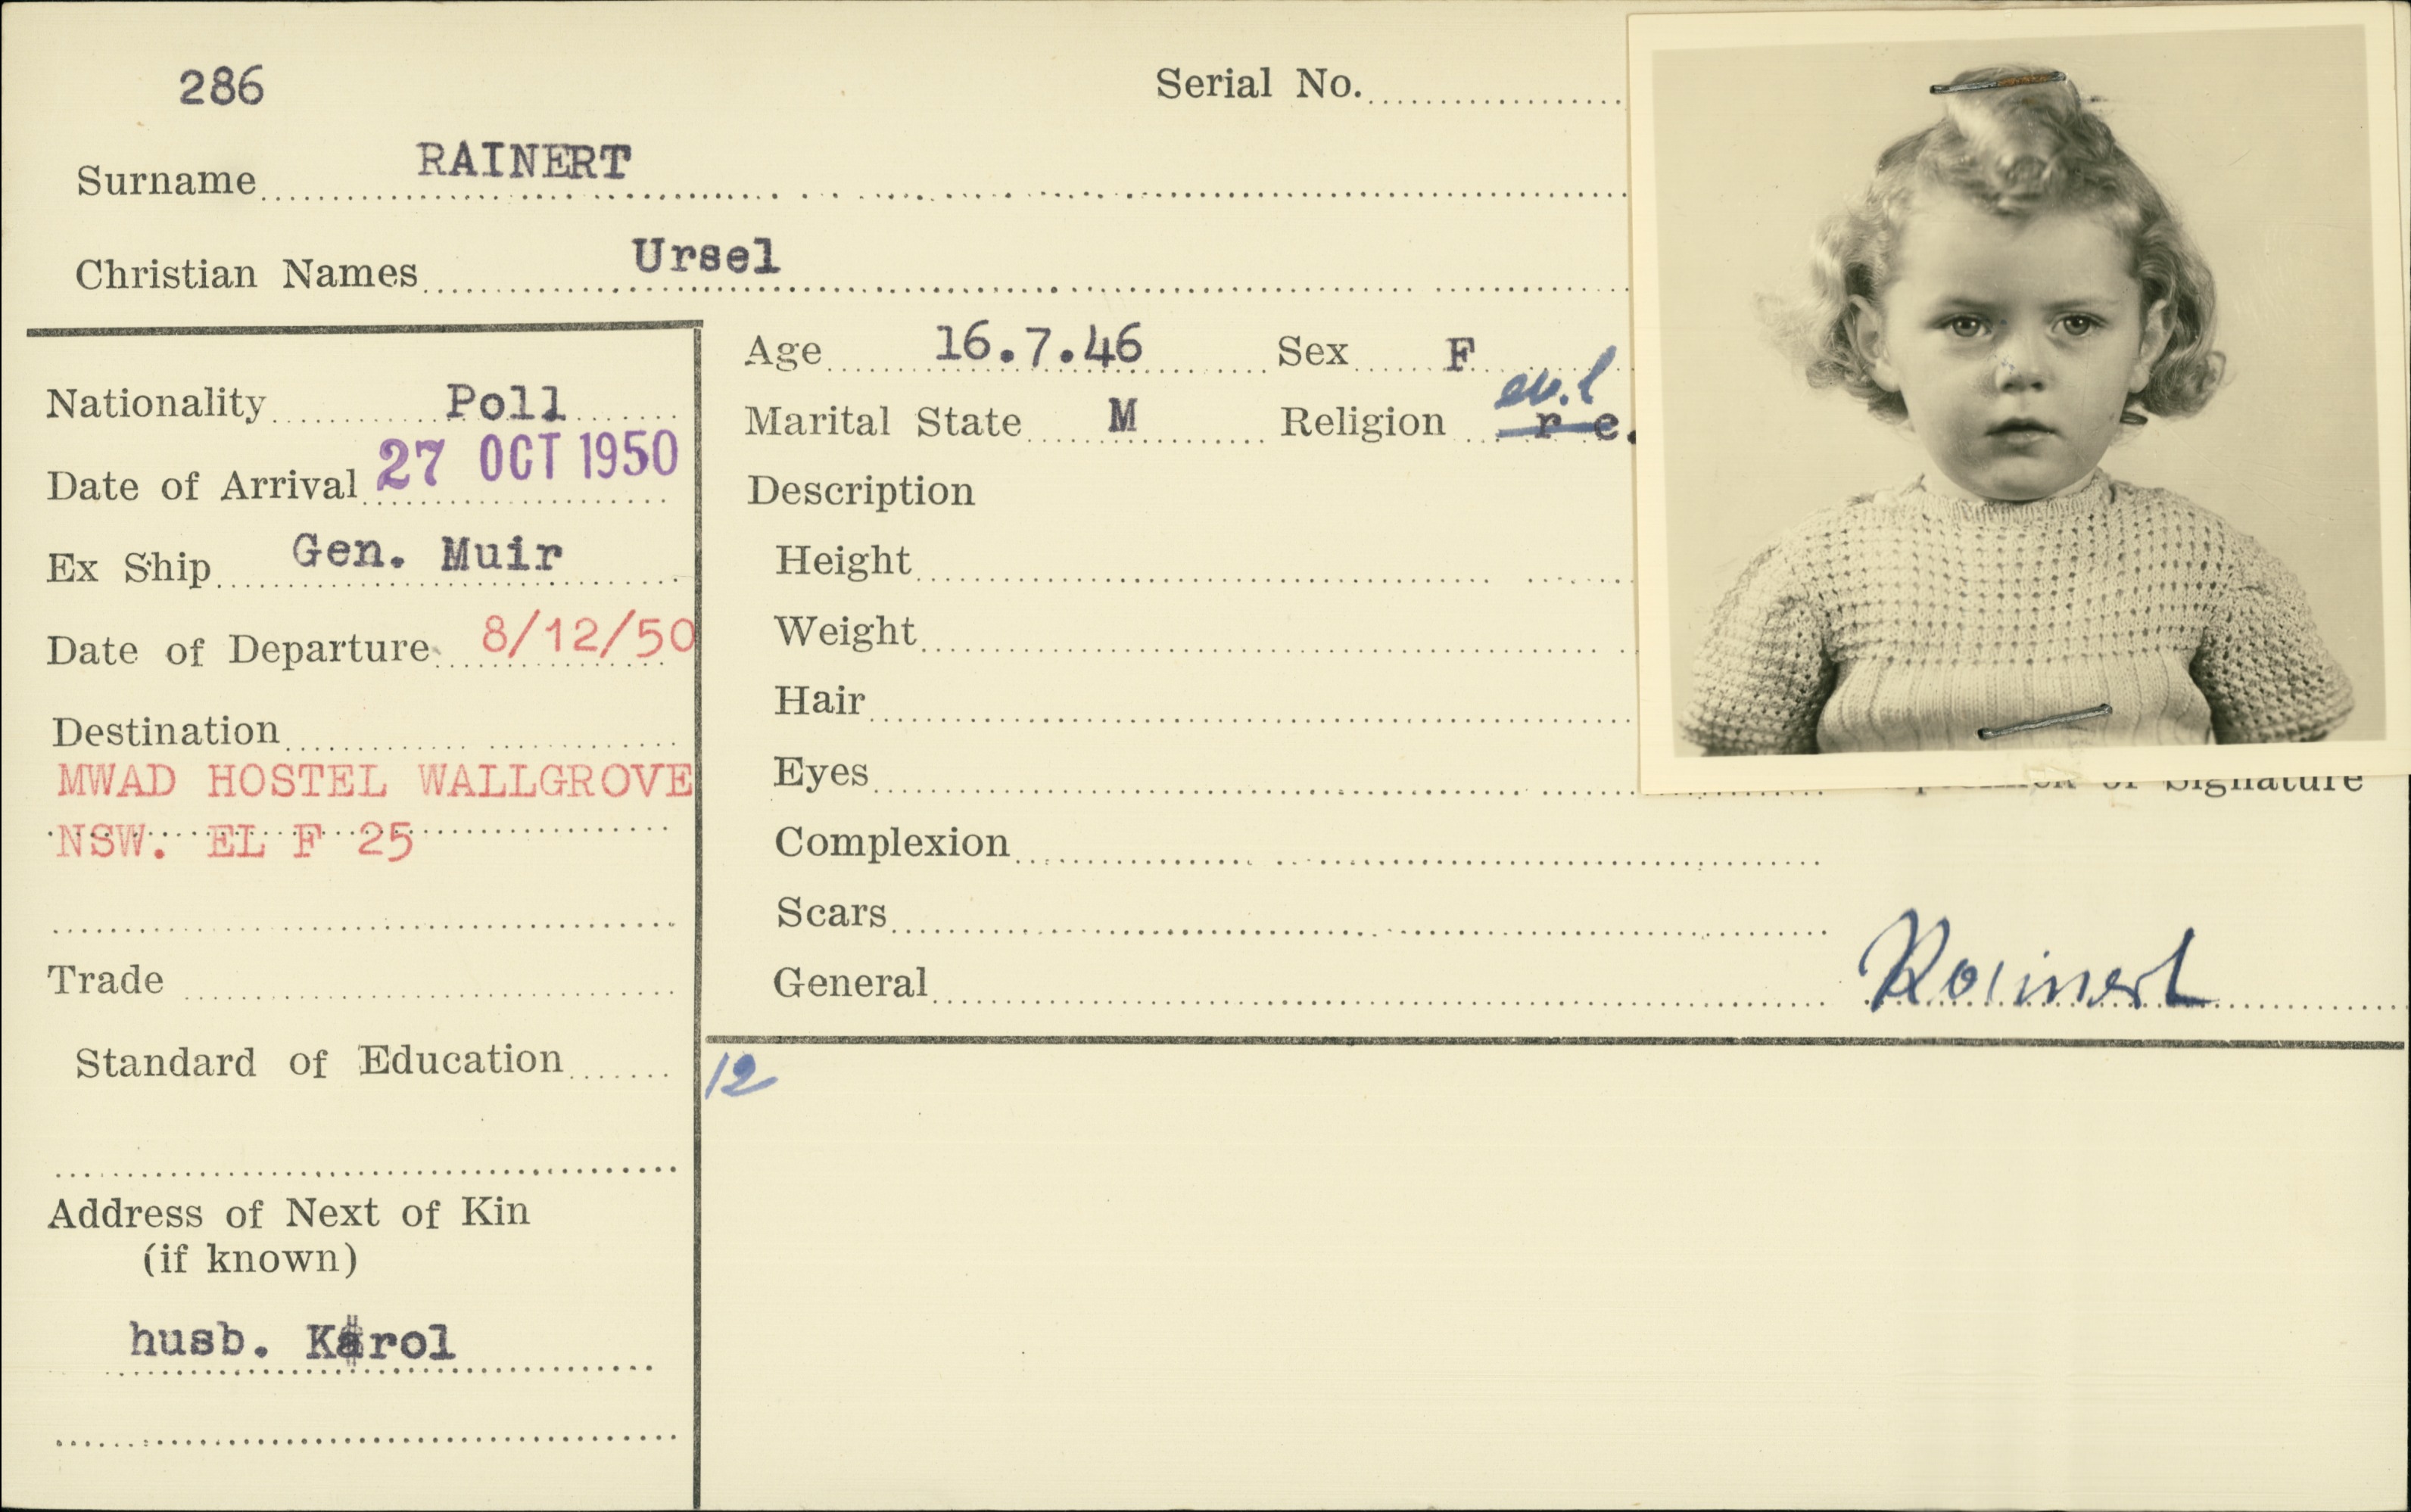 286
Serial No.
Surname RAINERT
Christian Names Ursel
Nationality Poll
Date of Arrival 27 OCT 1950
Ex Ship Gen. Muir
Date of Departure 8/12/50
Destination
MWAD HOSTEL WALLGROVE
NSW. EL F 25
Trade
Standard of Education
Address of Next of Kin
(if known)
husb. Karol
Age 16.7.46 Sex F
ev.l
Marital State M Religion r c.
Description
Height
Weight
Hair
Eyes
of Signature
Complexion
Scars
General
Rainert
12